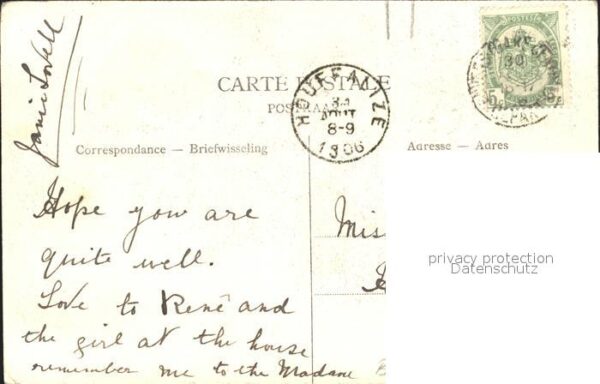 Janie Lovell
CARTE POSTALE
POSTKAART
HOUFFALIZE
AOUT
8-9
1906
Correspondance — Briefwisseling
Adresse — Adres
Hope you are
quite well.
Love to René and
the girl at the house
remember me to the Madame
Miss
privacy protection
Datenschutz